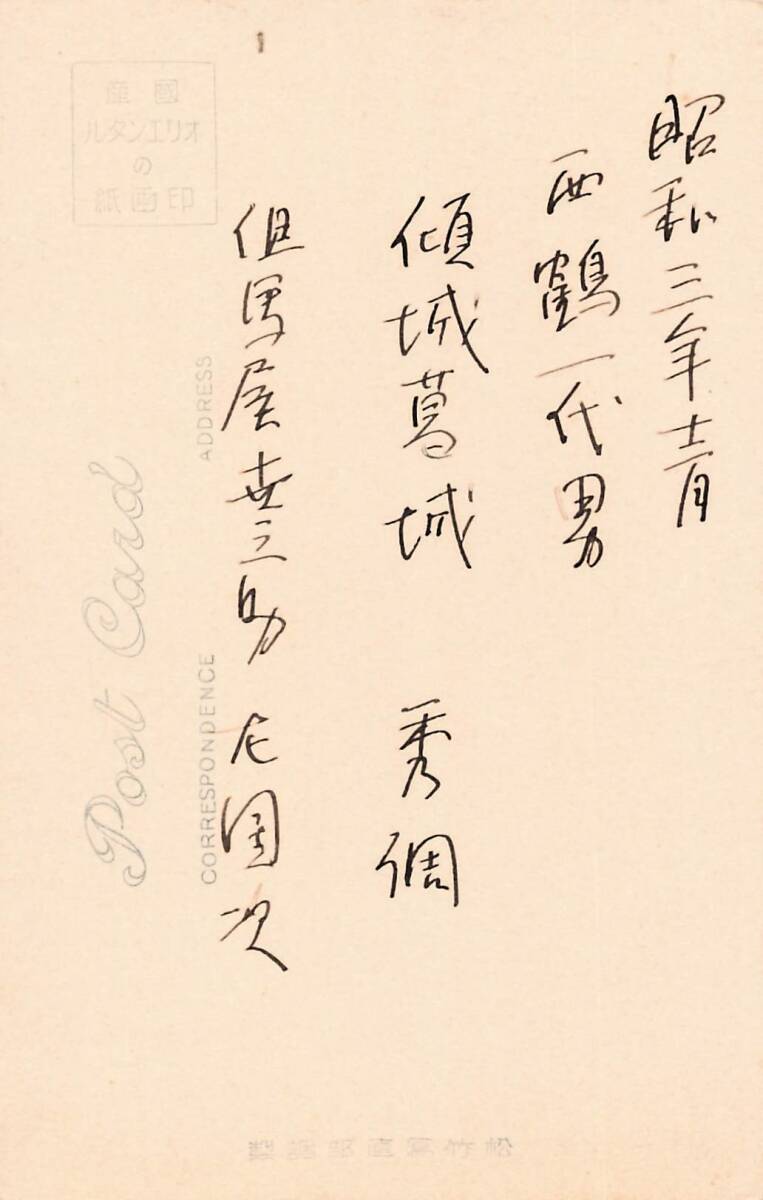 昭和三年十二月
西鶴一代男
傾城葛城 秀調
但馬屋世之助 左団次
國産
オリエンタル
の
印画紙
ADDRESS
CORRESPONDENCE
Post Card
松竹寫眞部謹製